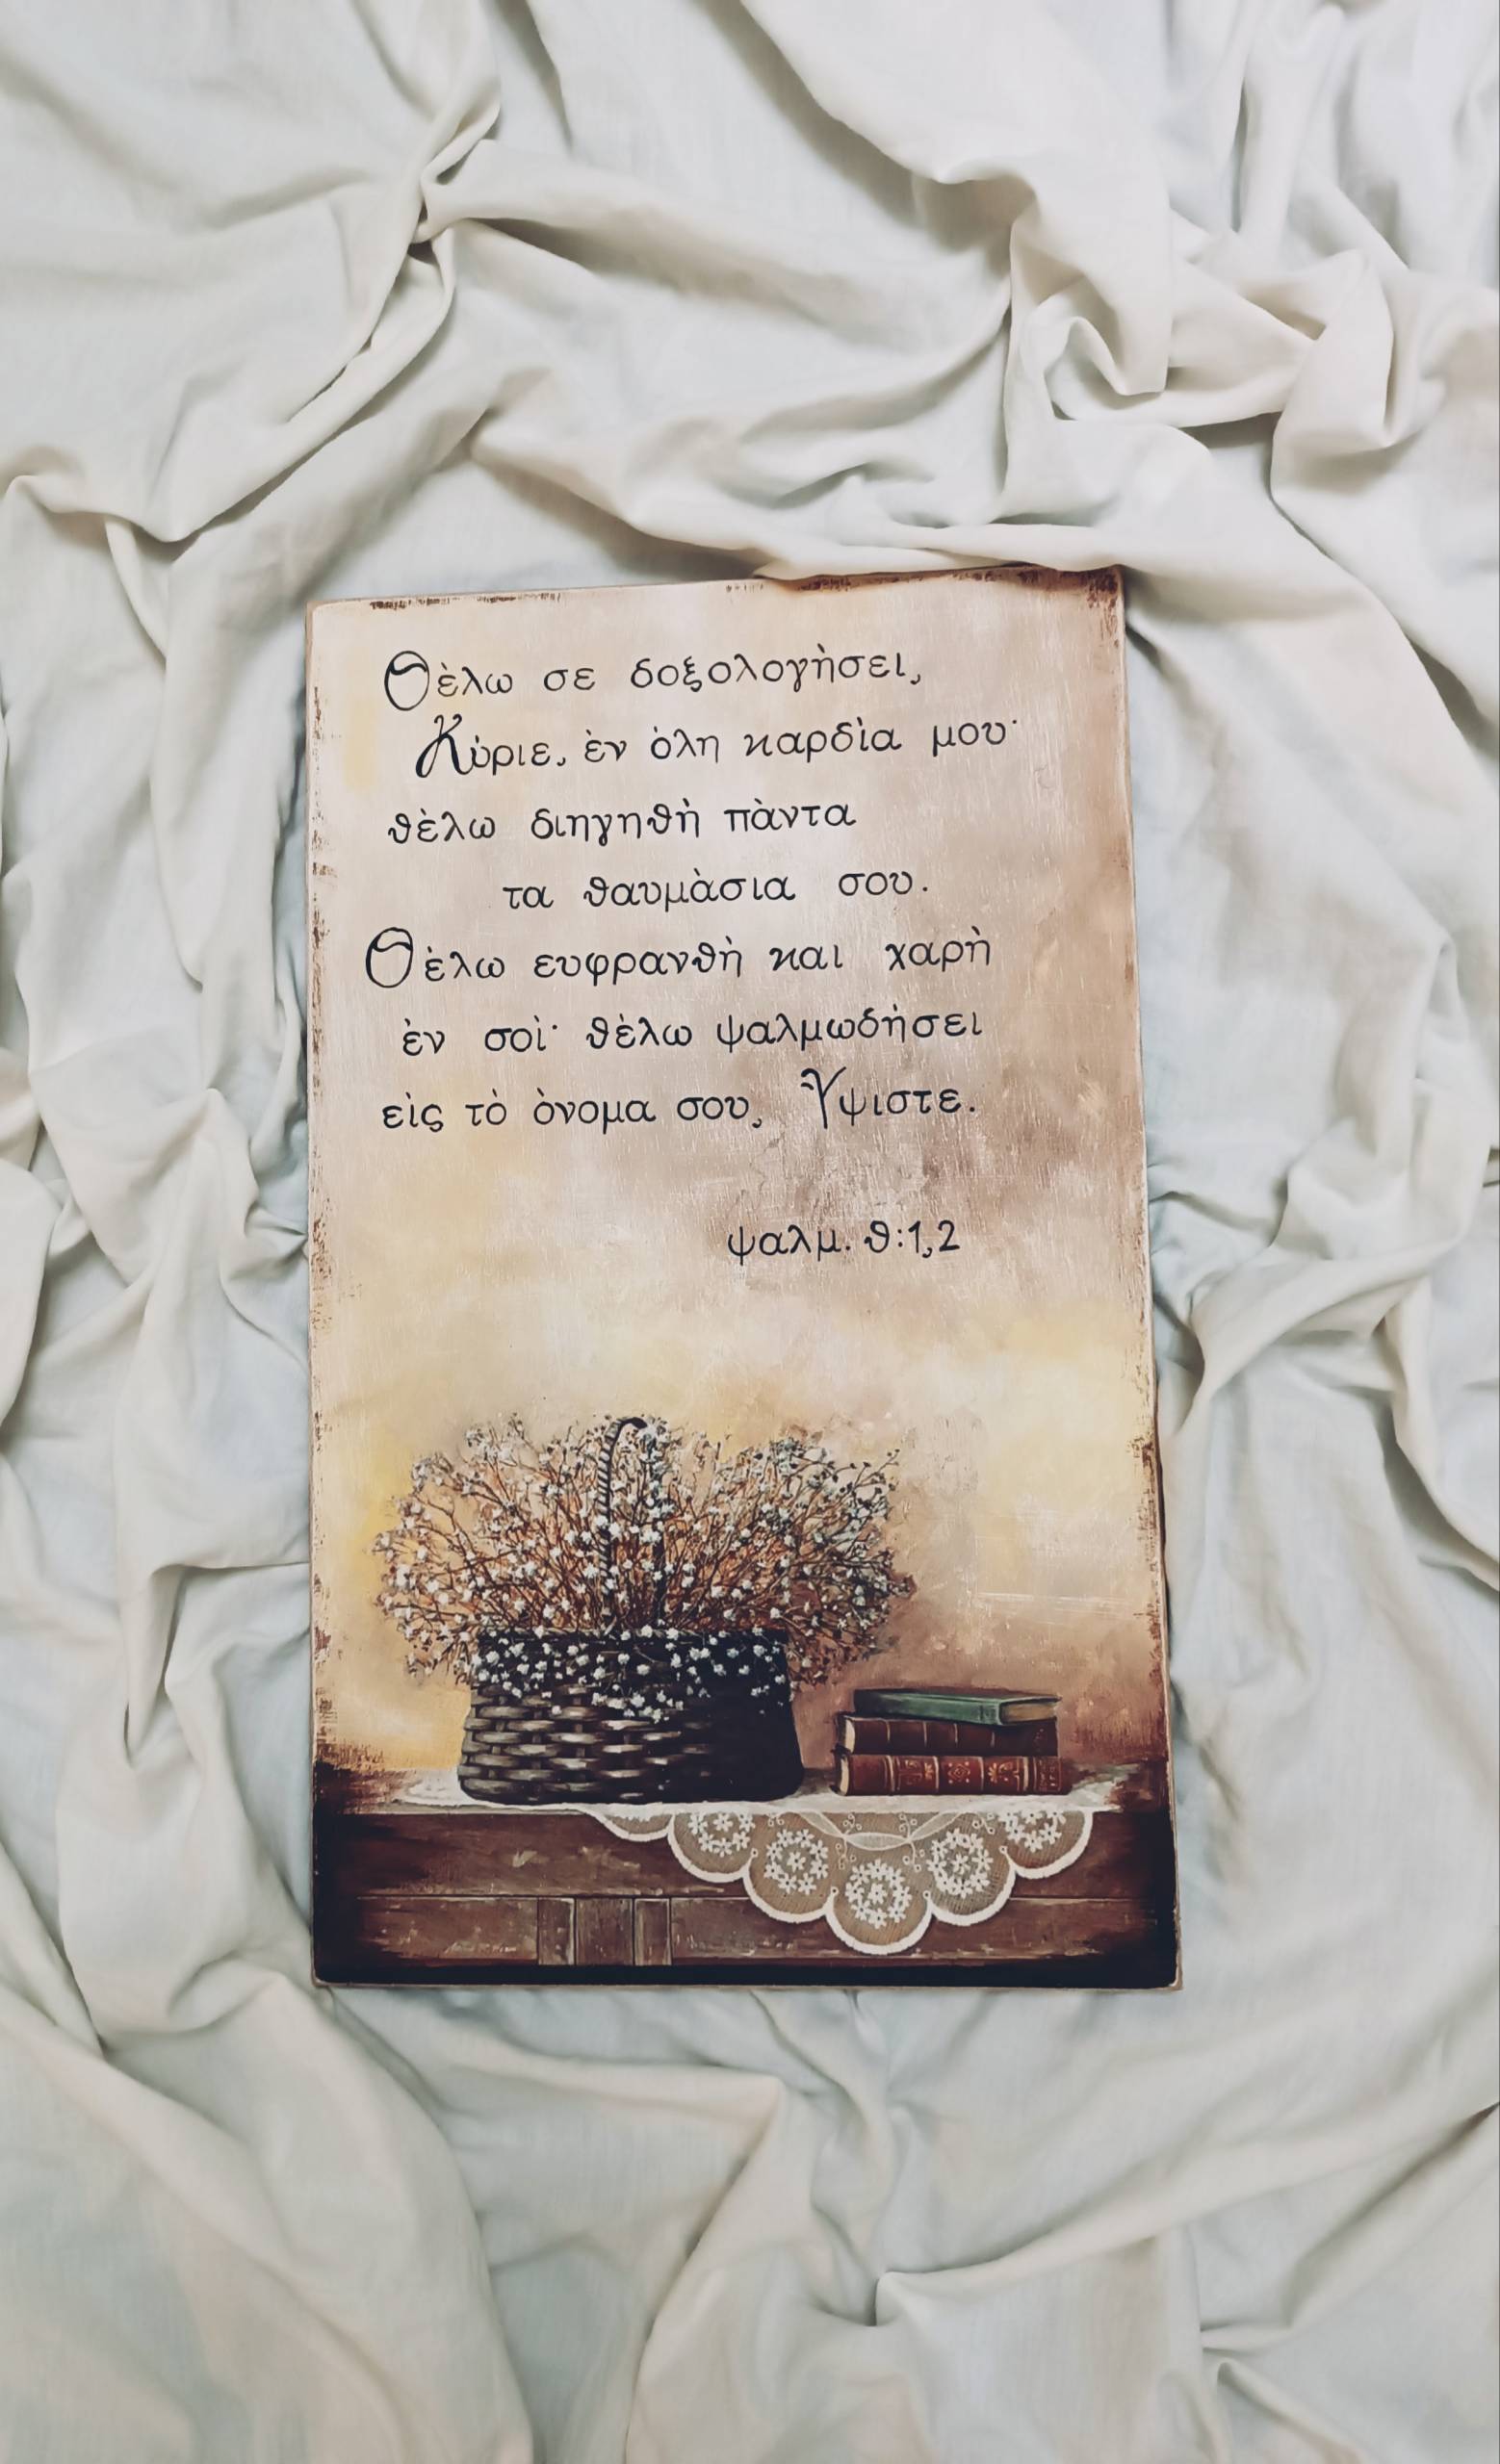 Θὲλω σε δοξολογὴσει,
Κὐριε, ἐν ὁλη καρδὶα μου·
θὲλω διηγηθὴ πὰντα
τα θαυμὰσια σου.
Θὲλω ευφρανθὴ και χαρὴ
ἐν σοὶ· θὲλω ψαλμωδὴσει
εἰς τὸ ὄνομα σου, Ὕψιστε.
ψαλμ. θ:1,2